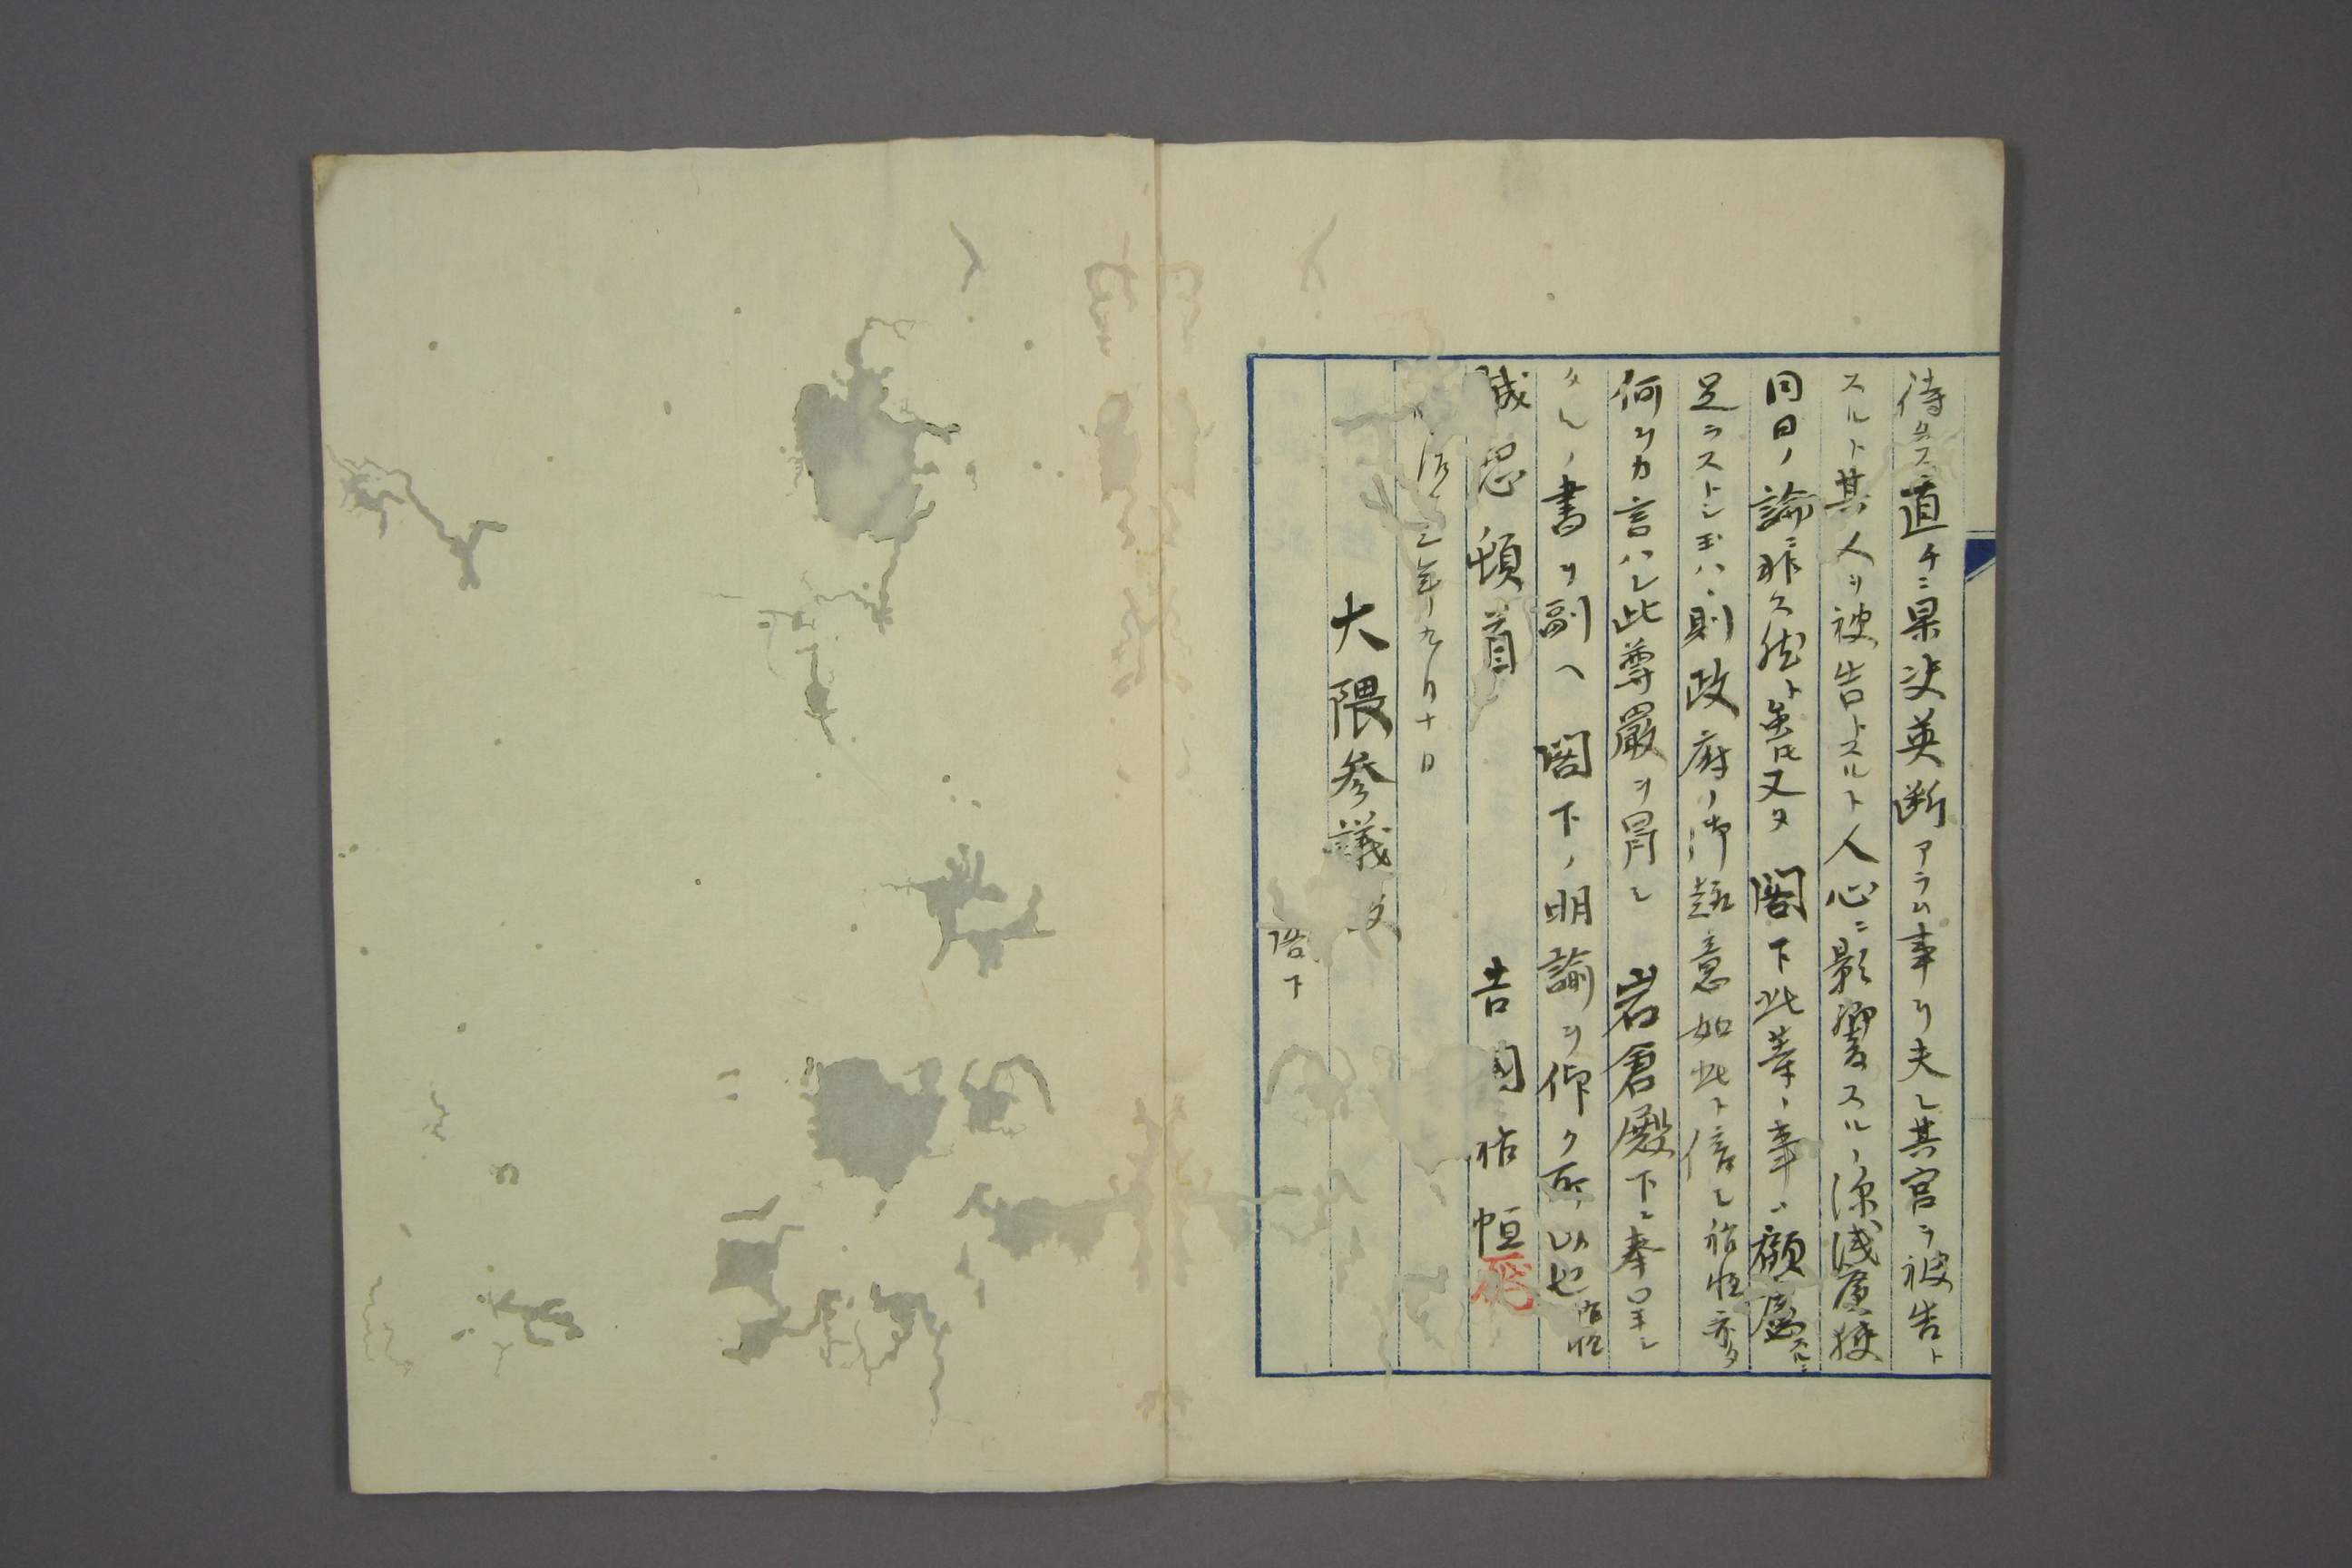 待タス直チニ果決英断アラム事ヲ夫レ其官ヲ被告ト
スルト其人ヲ被告トスルト人心ニ影響スルノ深浅広狭
同日ノ論ニ非ス然トモ又タ 閣下此等ノ事ハ顧慮スルニ
足ラストシ玉ハヽ則政府ノ御趣意如此ト信シ祐恒亦タ
何ヲカ言ハン此尊厳ヲ冒シ 岩倉殿下ニ奉呈シ
タルノ書ヲ副ヘ 閣下ノ明諭ヲ仰ク所以也祐恒
誠恐頓首 吉岡祐恒
治 三年九月十日
大隈参議
閣下